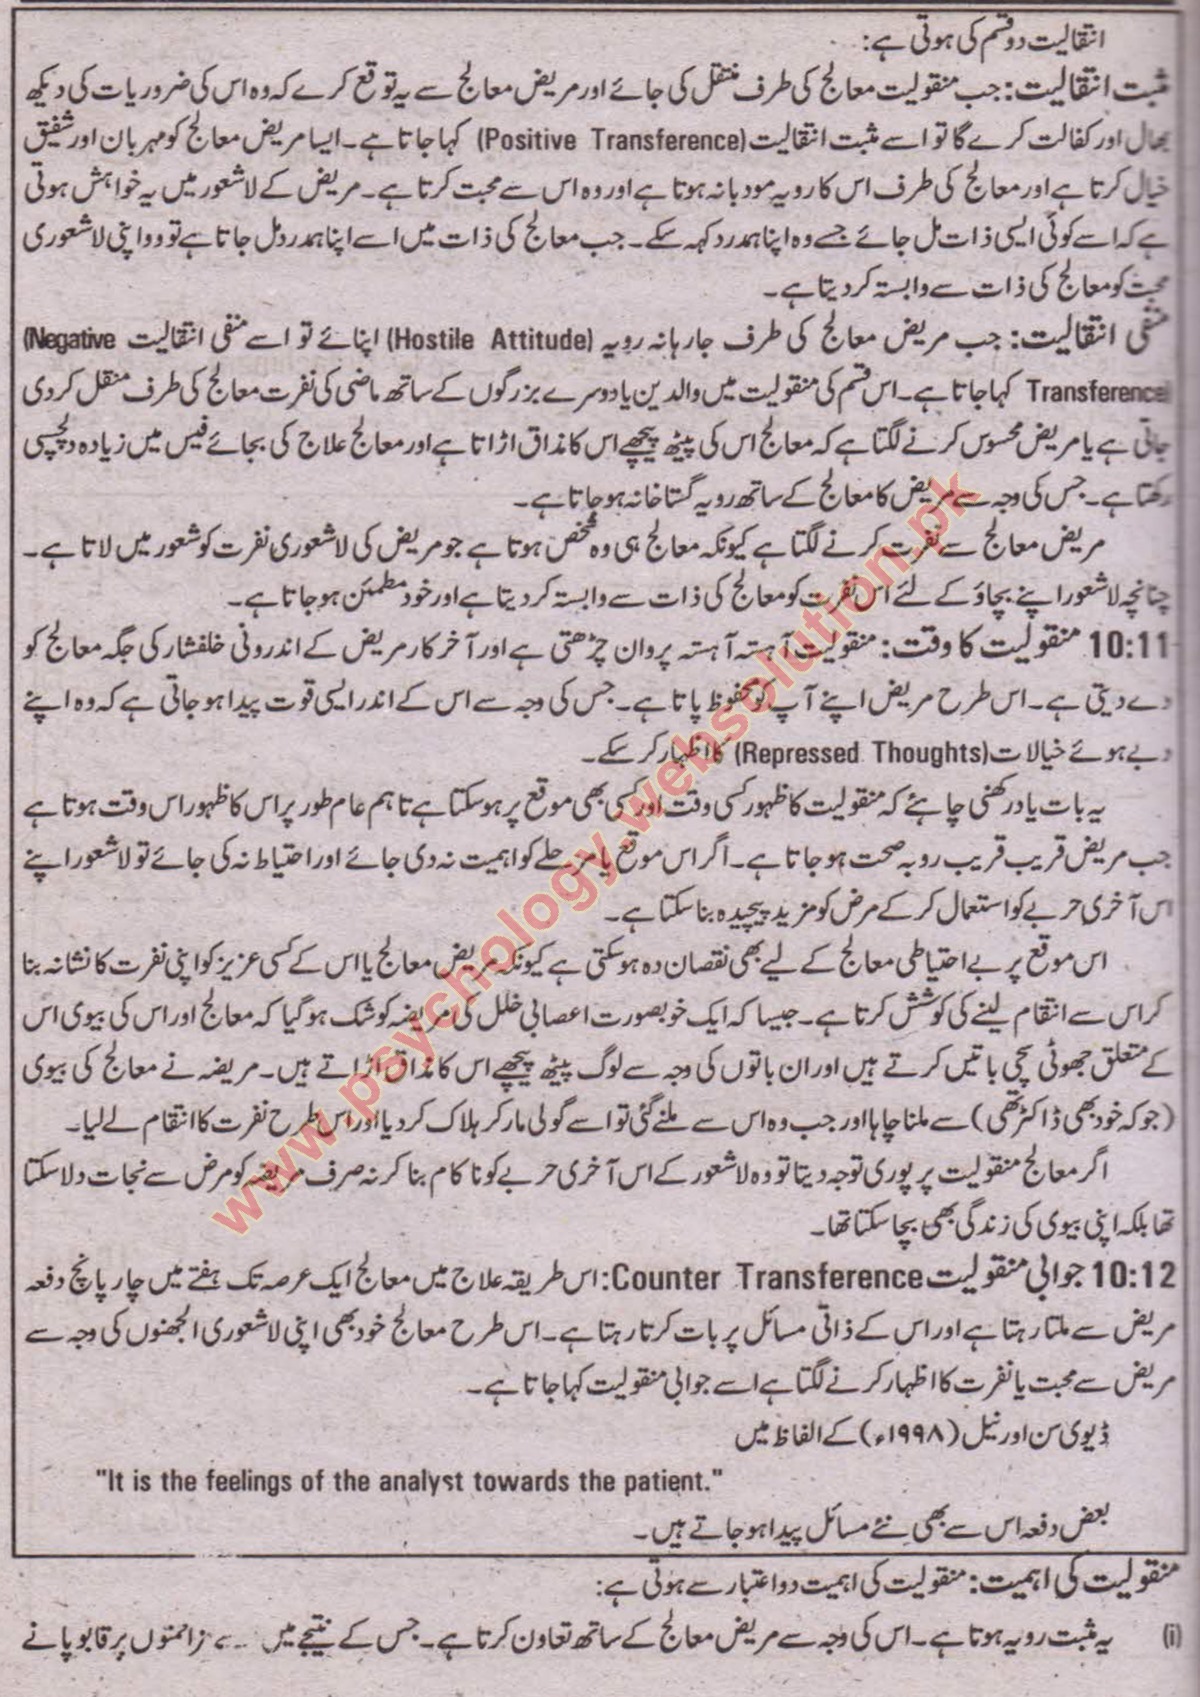 انتقالیت دو قسم کی ہوتی ہے:
مثبت انتقالیت: جب منقولیت معالج کی طرف منتقل کی جائے اور مریض معالج سے یہ توقع کرے کہ وہ اس کی ضروریات کی دیکھ
بھال اور کفالت کرے گا تو اسے مثبت انتقالیت (Positive Transference) کہا جاتا ہے۔ ایسا مریض معالج کو مہربان اور شفیق
خیال کرتا ہے اور معالج کی طرف اس کا رویہ مودبانہ ہوتا ہے اور وہ اس سے محبت کرتا ہے۔ مریض کے لاشعور میں یہ خواہش ہوتی
ہے کہ اسے کوئی ایسی ذات مل جائے جسے وہ اپنا ہمدرد کہہ سکے۔ جب معالج کی ذات میں اسے اپنا ہمدرد مل جاتا ہے تو وہ اپنی لاشعوری
محبت کو معالج کی ذات سے وابستہ کر دیتا ہے۔
منفی انتقالیت: جب مریض معالج کی طرف جارہانہ رویہ (Hostile Attitude) اپنائے تو اسے منفی انتقالیت (Negative
Transference) کہا جاتا ہے۔ اس قسم کی منقولیت میں والدین یا دوسرے بزرگوں کے ساتھ ماضی کی نفرت معالج کی طرف منتقل کر دی
جاتی ہے یا مریض محسوس کرنے لگتا ہے کہ معالج اس کی پیٹھ پیچھے اس کا مذاق اڑاتا ہے اور معالج علاج کی بجائے فیس میں زیادہ دلچسپی
رکھتا ہے۔ جس کی وجہ سے مریض کا معالج کے ساتھ رویہ گستاخانہ ہو جاتا ہے۔
مریض معالج سے نفرت کرنے لگتا ہے کیونکہ معالج ہی وہ شخص ہوتا ہے جو مریض کی لاشعوری نفرت کو شعور میں لاتا ہے۔
چنانچہ لاشعور اپنے بچاؤ کے لئے اس نفرت کو معالج کی ذات سے وابستہ کر دیتا ہے اور خود مطمئن ہو جاتا ہے۔
10:11 منقولیت کا وقت: منقولیت آہستہ آہستہ پروان چڑھتی ہے اور آخر کار مریض کے اندرونی خلفشار کی جگہ معالج کو
دے دیتی ہے۔ اس طرح مریض اپنے آپ کو محفوظ پاتا ہے۔ جس کی وجہ سے اس کے اندر ایسی قوت پیدا ہو جاتی ہے کہ وہ اپنے
دبے ہوئے خیالات (Repressed Thoughts) کا اظہار کر سکے۔
یہ بات یاد رکھنی چاہئے کہ منقولیت کا ظہور کسی وقت اور کسی بھی موقع پر ہو سکتا ہے تاہم عام طور پر اس کا ظہور اس وقت ہوتا ہے
جب مریض قریب قریب رو بہ صحت ہو جاتا ہے۔ اگر اس موقع یا مرحلے کو اہمیت نہ دی جائے اور احتیاط نہ کی جائے تو لاشعور اپنے
اس آخری حربے کو استعمال کر کے مرض کو مزید پیچیدہ بنا سکتا ہے۔
اس موقع پر بے احتیاطی معالج کے لیے بھی نقصان دہ ہو سکتی ہے کیونکہ مریض معالج یا اس کے کسی عزیز کو اپنی نفرت کا نشانہ بنا
کر اس سے انتقام لینے کی کوشش کرتا ہے۔ جیسا کہ ایک خوبصورت اعصابی خلل کی مریضہ کو شک ہو گیا کہ معالج اور اس کی بیوی اس
کے متعلق جھوٹی سچی باتیں کرتے ہیں اور ان باتوں کی وجہ سے لوگ پیٹھ پیچھے اس کا مذاق اڑاتے ہیں۔ مریضہ نے معالج کی بیوی
(جو کہ خود بھی ڈاکٹر تھی) سے ملنا چاہا اور جب وہ اس سے ملنے گئی تو اسے گولی مار کر ہلاک کر دیا اور اس طرح نفرت کا انتقام لے لیا۔
اگر معالج منقولیت پر پوری توجہ دیتا تو وہ لاشعور کے اس آخری حربے کو ناکام بنا کر نہ صرف مریضہ کو مرض سے نجات دلا سکتا
تھا بلکہ اپنی بیوی کی زندگی بھی بچا سکتا تھا۔
10:12 جوابی منقولیت Counter Transference: اس طریقہ علاج میں معالج ایک عرصہ تک ہفتے میں چار پانچ دفعہ
مریض سے ملتا رہتا ہے اور اس کے ذاتی مسائل پر بات کرتا رہتا ہے۔ اس طرح معالج خود بھی اپنی لاشعوری الجھنوں کی وجہ سے
مریض سے محبت یا نفرت کا اظہار کرنے لگتا ہے اسے جوابی منقولیت کہا جاتا ہے۔
ڈیوی سن اور نیل (۱۹۹۸ء) کے الفاظ میں
"It is the feelings of the analyst towards the patient."
بعض دفعہ اس سے بھی نئے مسائل پیدا ہو جاتے ہیں۔
منقولیت کی اہمیت: منقولیت کی اہمیت دو اعتبار سے ہوتی ہے:
(i) یہ مثبت رویہ ہوتا ہے۔ اس کی وجہ سے مریض معالج کے ساتھ تعاون کرتا ہے۔ جس کے نتیجے میں پر قابو پانے
www.psychology.websolution.pk